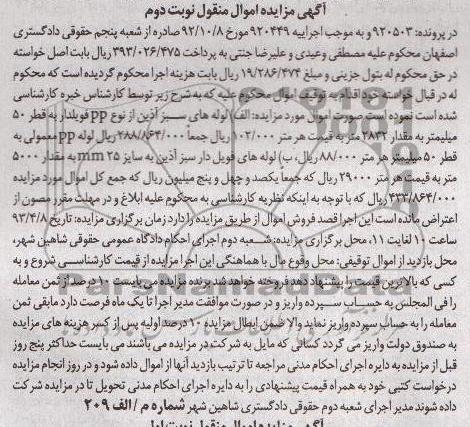 آگهی مزایده اموال منقول نوبت دوم
در پرونده: ۹۲۰۵۰۳ و به موجب اجراییه ۹۲۰۴۴۹ مورخ ۹۲/۱۰/۸ صادره از شعبه پنجم حقوقی دادگستری
اصفهان محکوم علیه مصطفی وعیدی و علیرضا جنتی به پرداخت ۳۹۳/۰۲۶/۴۷۵ ریال بابت اصل خواسته
در حق محکوم له بتول جزینی و مبلغ ۱۹/۲۸۶/۴۷۴ ریال بابت هزینه اجرا محکوم گردیده است که محکوم
له در قبال خواسته خود اقدام به توقیف اموال محکوم علیه که به شرح زیر توسط کارشناس خبره کارشناسی
شده است نموده است صورت اموال مورد مزایده: الف) لوله های سبز آذین از نوع pp فویلدار به قطر ۵۰
میلیمتر به مقدار ۲۸۳۲ متر به قیمت هر متر ۱۰۲/۰۰۰ ریال جمعاً ۲۸۸/۸۶۴/۰۰۰ ریال لوله pp معمولی به
قطر ۵۰ میلیمتر هر متر ۸۸/۰۰۰ ریال، ب) لوله های فویل دار سبز آذین به سایز ۲۵ mm به مقدار ۵۰۰۰
متر به قیمت هر متر ۲۹۰۰۰ ریال که جمعاً یکصد و چهل و پنج میلیون ریال که جمع کل اموال مورد مزایده
۴۳۳/۸۶۴/۰۰۰ ریال که با توجه به اینکه نظریه کارشناسی به محکوم علیه ابلاغ و در مهلت مقرر مصون از
اعتراض مانده است این اجرا قصد فروش اموال از طریق مزایده را دارد زمان برگزاری مزایده: تاریخ ۹۳/۴/۸
ساعت ۱۰ لغایت ۱۱، محل برگزاری مزایده: شعبه دوم اجرای احکام دادگاه عمومی حقوقی شاهین شهر،
محل بازدید از اموال توقیفی: محل وقوع مال با هماهنگی این اجرا مزایده از قیمت کارشناسی شروع و به
کسی که بالاترین قیمت را پیشنهاد دهد فروخته خواهد شد برنده مزایده می بایست ۱۰ درصد از ثمن معامله
را فی المجلس به حساب سپرده واریز و در صورت موافقت مدیر اجرا تا یک ماه فرصت دارد مابقی ثمن
معامله را به حساب سپرده واریز نماید والا ضمن ابطال مزایده ۱۰ درصد اولیه پس از کسر هزینه های مزایده
به صندوق دولت واریز می گردد کسانی که مایل به شرکت در مزایده می باشند می بایست حداکثر پنج روز
قبل از مزایده به دایره اجرای احکام مدنی مراجعه تا ترتیب بازدید آنها از اموال داده شود و در روز انجام مزایده
درخواست کتبی خود به همراه قیمت پیشنهادی را به دایره اجرای احکام مدنی تحویل تا در مزایده شرکت
داده شوند مدیر اجرای شعبه دوم حقوقی دادگستری شاهین شهر شماره م / الف ۲۰۹
آگهی مزایده اموال منقول نوبت اول